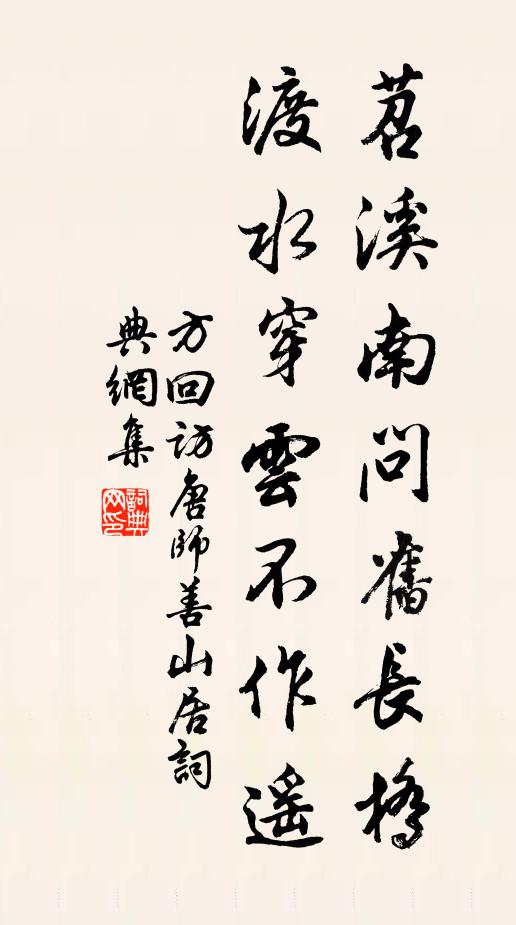 苕溪南問舊長橋
渡水穿雲不作遥
方回訪唐師善山居詞
典網集
詞典
网印